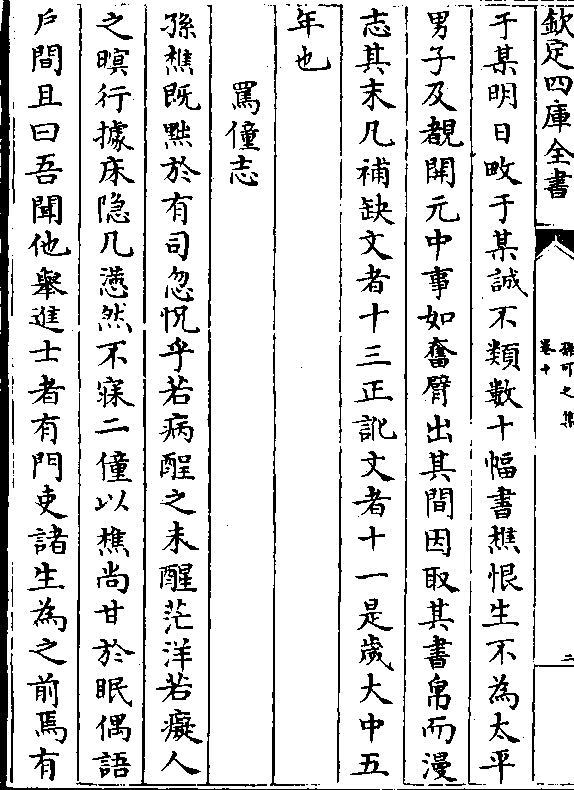 欽定四庫全書
孫可之集
卷十
二
于某明日畋于某誠不類數十幅書樵恨生不為太平
男子及覩開元中事如奮臂出其間因取其書帛而漫
志其末凡補缺文者十三正訛文者十一是歲大中五
年也
罵僮志
孫樵既黜於有司忽怳乎若病酲之未醒茫洋若癡人
之瞑行據床隐几懣然不寐二僮以樵尚甘於眠偶語
戶間且曰吾聞他舉進士者有門吏諸生為之前焉有